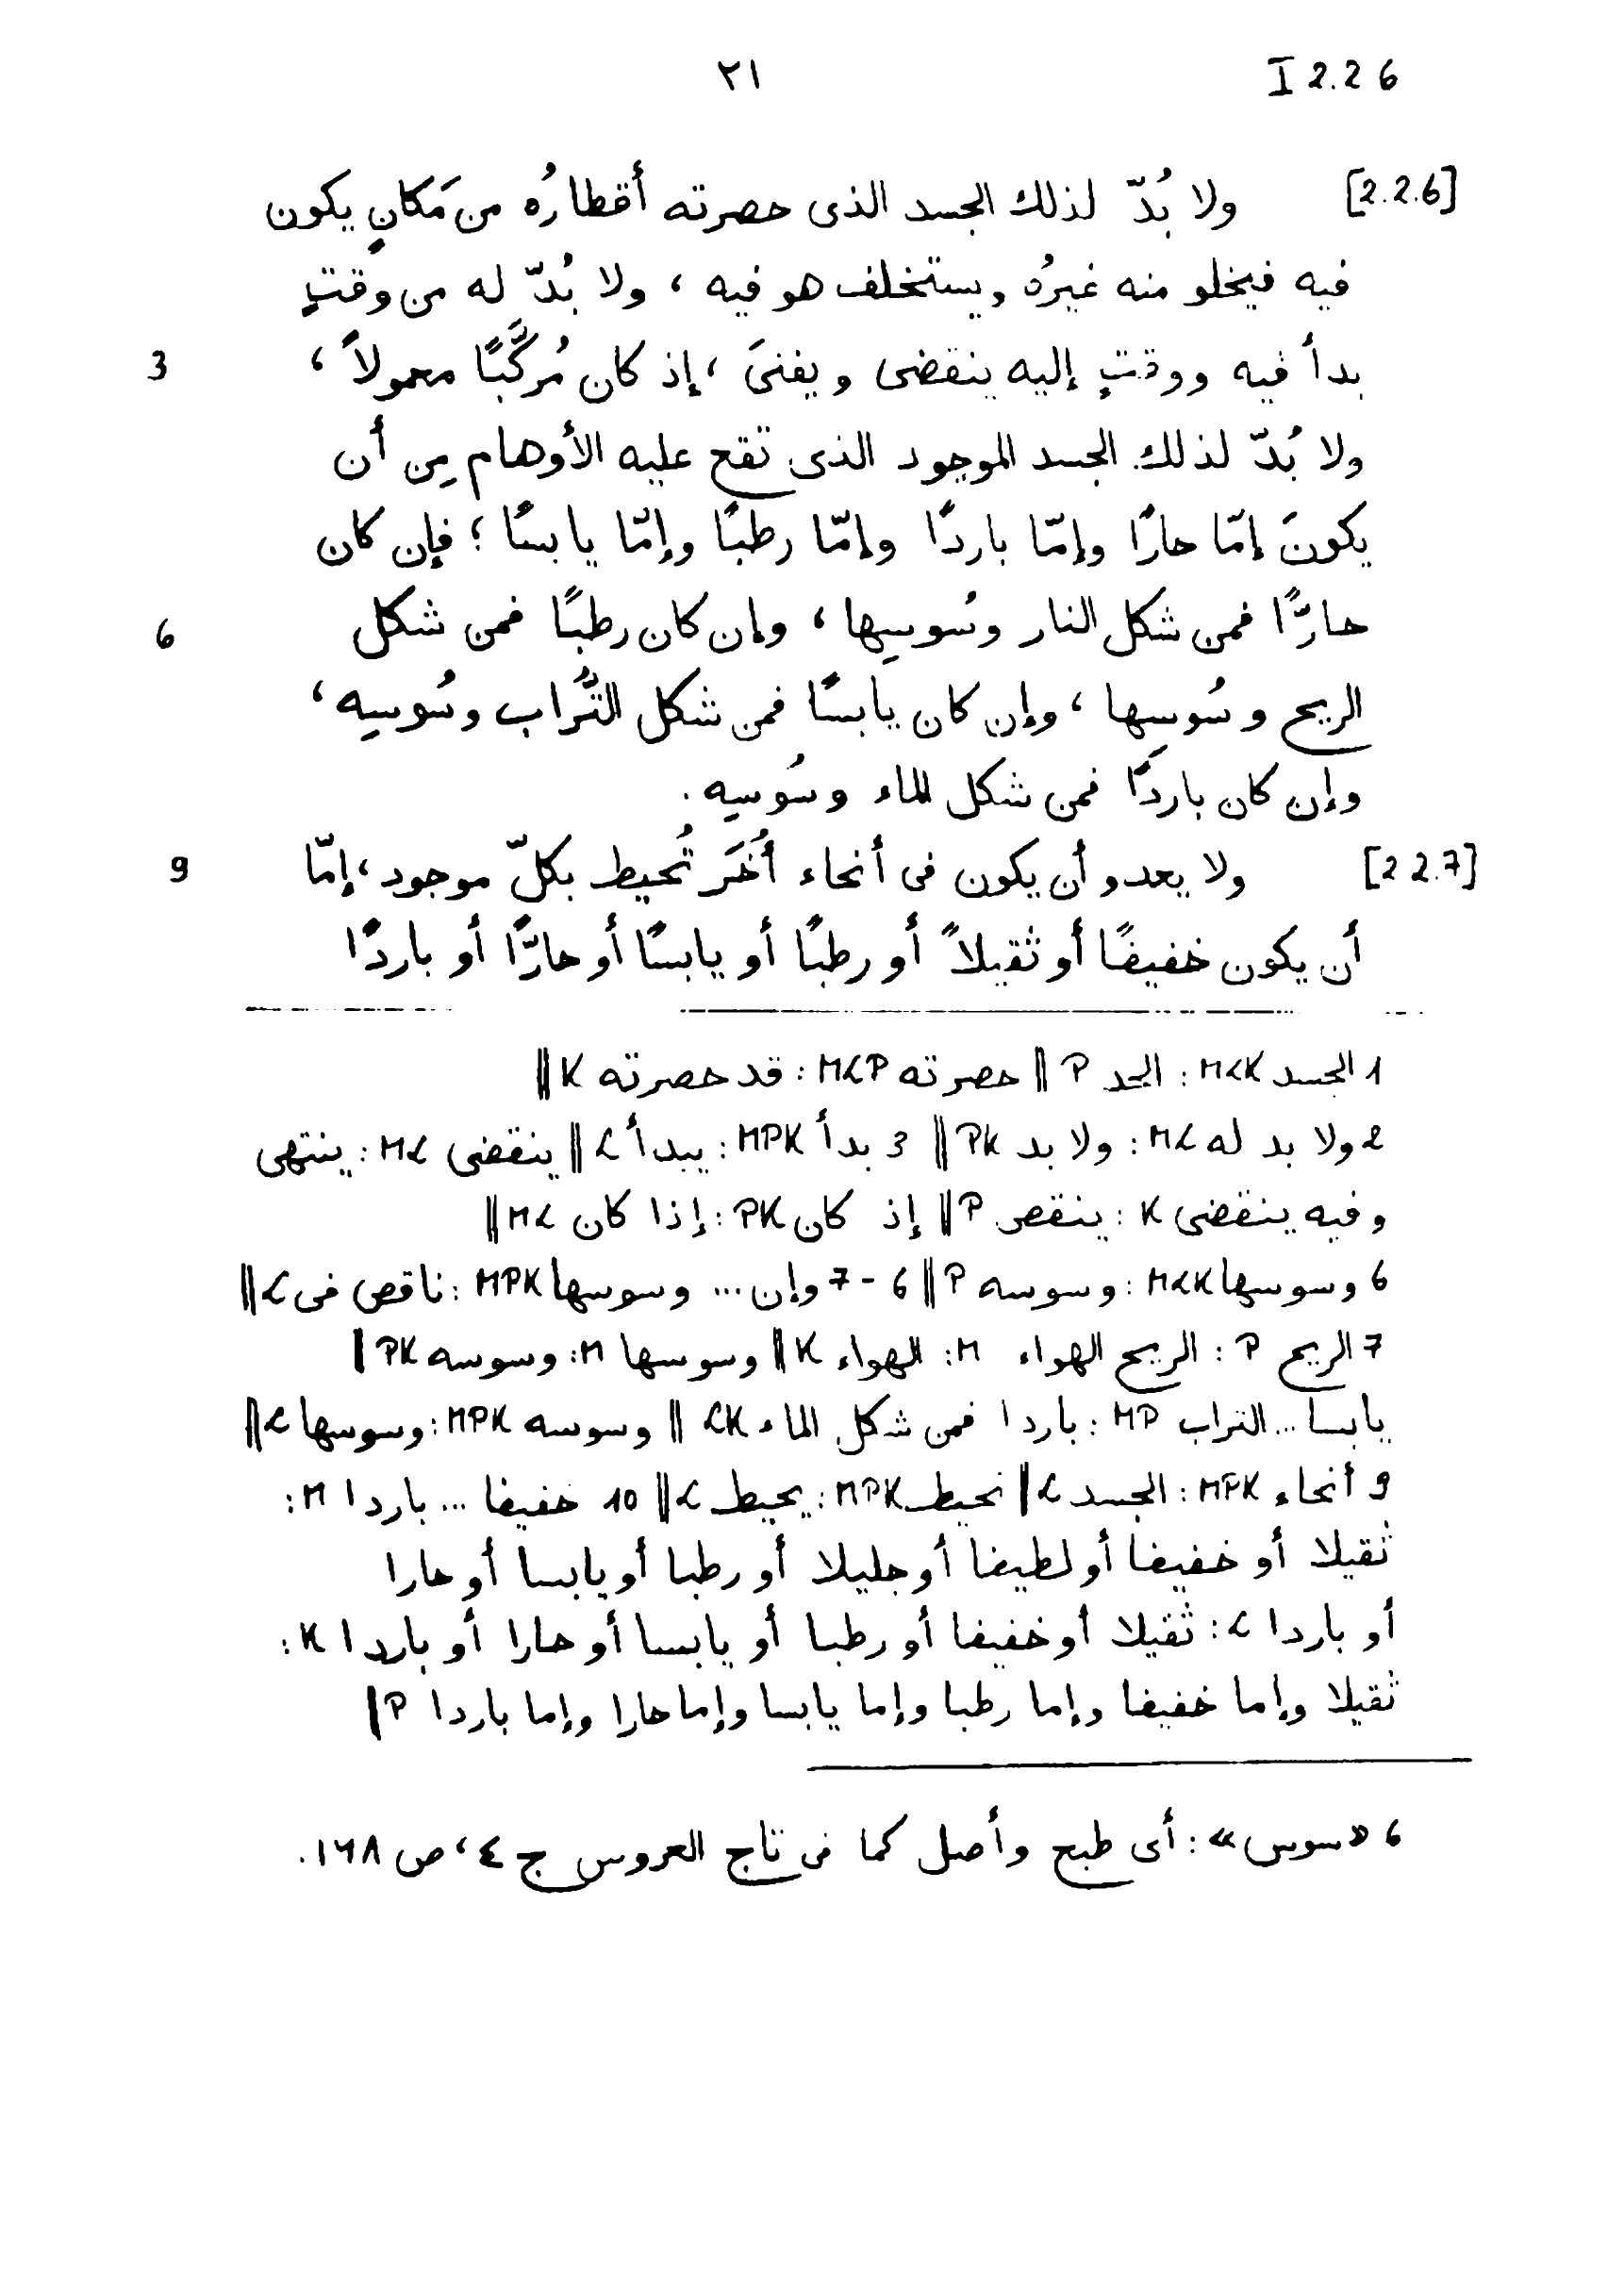 ٢١ I 2.2 6
[2.2.6] ولا بُدّ لذلك الجسد الذى حصرته أقطارُه من مَكانٍ يكون
فيه فيخلو منه غيرُه ويستخلف هو فيه ، ولا بُدّ له من وقتٍ
3 بدأ فيه ووقتٍ إليه ينقضى ويفنىَ ، إذ كان مُركَّبًا معمولاً ،
ولا بُدّ لذلك الجسد الموجود الذى تقع عليه الأوهام مِن أن
يكونَ إمّا حارًا وإمّا باردًا وإمّا رطبًا وإمّا يابسًا ؛ فإن كان
6 حارًّا فمن شكل النار وسُوسِها ، وإن كان رطبًا فمن شكل
الريح وسُوسِها ، وإن كان يابسًا فمن شكل التُّراب وسُوسِه ،
وإن كان باردًا فمن شكل الماء وسُوسِه .
9 [2 2.7] ولا يعدو أن يكون فى أنحاء أُخَر تُحيط بكلّ موجود ، إمّا
أن يكون خفيفًا أو ثقيلاً أو رطبًا أو يابسًا أو حارًّا أو باردًا
1 الجسد MLK : الحد P || حصرته MLP : قد حصرته K ||
2 ولا بد له ML : ولا بد PK || 3 بدأ MPK : يبدأ L || ينقضى ML : ينتهى
وفيه ينقضى K : ينقص P || إذ كان PK : إذا كان ML ||
6 وسوسها MLK : وسوسه P || 6 - 7 وإن ... وسوسها MPK : ناقص فى L ||
7 الريح P : الريح الهواء M : الهواء K || وسوسها M : وسوسه PK ||
يابسا ... التراب MP : باردا فمن شكل الماء LK || وسوسه MPK : وسوسها L ||
9 أنحاء MPK : الجسد L || تحيط MPK : يحيط L || 10 خفيفا ... باردا M :
ثقيلا أو خفيفا أو لطيفا أو جليلا أو رطبا أو يابسا أو حارا
أو باردا L : ثقيلا أو خفيفا أو رطبا أو يابسا أو حارا أو باردا K :
ثقيلا وإما خفيفا وإما رطبا وإما يابسا وإما حارا وإما باردا P ||
6 «سوس» : أى طبع وأصل كما فى تاج العروس ج ٤ ، ص ١٦٨ .